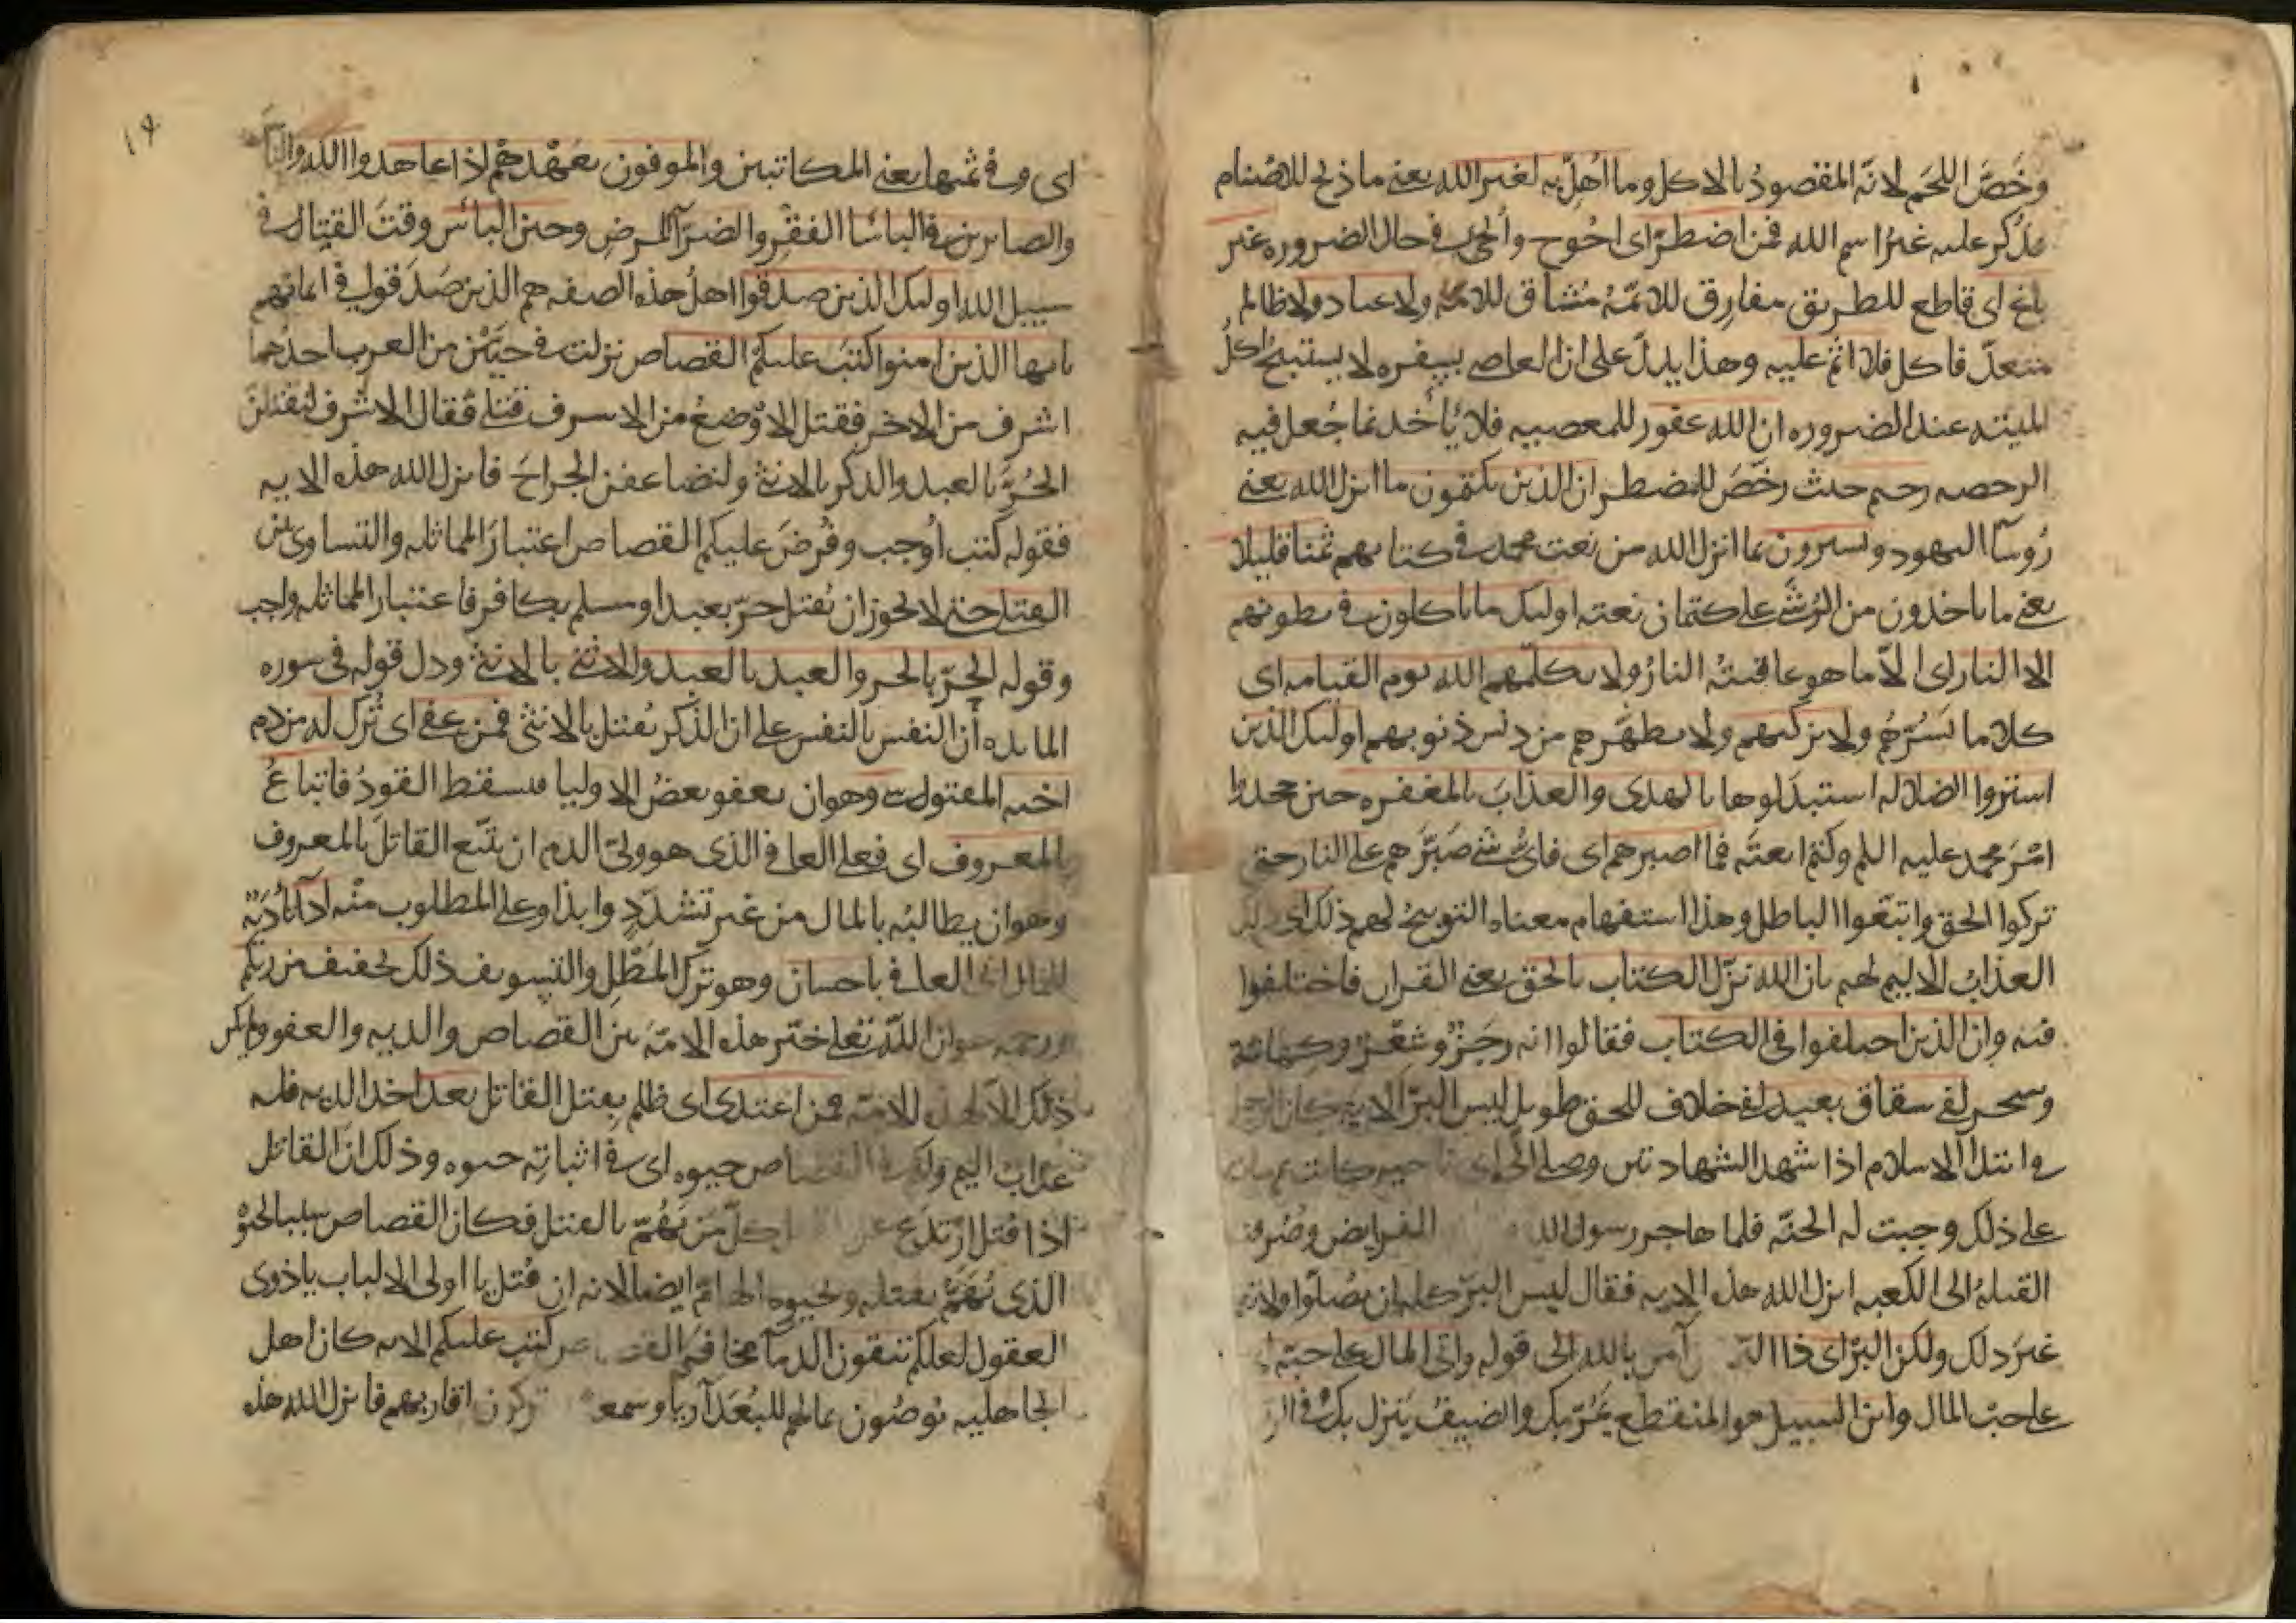 وخَصَّ اللحَم لانّه المقصودُ بالاكل وما اُهِلّ به لغير الله يعني ما ذبح للاصنام
فذُكر عليه غيرُ اسم الله فمن اضطرّ اى اُحْوج واُلجى في حال الضروره غير
باغ اى قاطع للطريق مفارق للائمّه مُشاق للامه ولا عاد ولا ظالم
متعدّ فاكل فلا اثم عليه وهذا يدلّ على ان العاصى بسفره لا يستبيح اكلُ
الميته عند الضروره ان الله غفور للمعصيه فلا يُاخذ بما جُعل فيه
الرخصه رحيم حيث رخّصَ للمضطر ان الذين يكتمون ما انزل الله يعني
رُوسآ اليهود ويشترون بما انزل الله من نعت محمد في كتابهم ثمنا قليلا
يعني ما ياخذون من الرُشَى على كتمان نعته اوليك ما ياكلون في بطونهم
الا النار اى الاّ ما هو عاقبتُه النارُ ولا يكلّمهم الله يوم القيامه اى
كلاما يَسُرّهُم ولا يزكيهم ولا يطهّرهم من دنس ذنوبهم اوليك الذين
اشتروا الضلاله استبدَلوها بالهدى والعذابَ بالمغفره حين جحدوا
امْرَ محمد عليه السلم وكتموا بعثَه فما اصبرهم اى فاىُّ شىْ صَبّرَهم على النار حتى
تركوا الحق واتبعوا الباطل وهذا استفهام معناه التوبيخُ لهم ذلك اى ذلك
العذابُ الاليم لهم بان الله نزّل الكتاب بالحق يعني القران فاختلفوا
فيه وان الذين اختلفوا في الكتاب فقالوا انه رجَزٌ وشعْرٌ وكهانة
وسحر لفى شقاق بعيد لفى خلاف للحق طويل ليس البرّ الايه كان الرجل
في ابتدآ الاسلام اذا شهد الشهادتين وصلى الى اى ناحيه كانت ثم مات
على ذلك وجبت له الجنّه فلما هاجر رسول الله الفرايض وصُرفت
القبلهُ الى الكعبه انزل الله هذه الايه فقال ليس البرّ كله ان تُصلّوا ولا
غيرَ ذلك ولكن البرّ اى ذا البرّ من آمن بالله الى قوله واتى المال على حبّه
على حبّ المال وابن السبيل هو المنقطع يَمُرّ بك والضيفُ ينزل بك وفي الرقاب
اى وفي ثمنها يعني المكاتبين والموفون بعَهْدهِمْ اذا عاهدوا الله والناس
والصابرين في الباسا الفقْرِ والضرّآ المرضِ وحين الباْس وقتَ القتال في
سبيل الله اوليك الذين صدقوا اهلُ هذه الصفه هم الذين صَدَقوا في ايمانهم
يايها الذين امنوا كُتبَ عليكم القصاص نزلت في حيَّيْن من العرب احدُهما
اشرف من الاخر فقتل الاوْضعُ من الاشرف قتلى فقال الاشرف لنقتلنَّ
الحُرَّ بالعبد والذكر بالانثى ولنضاعفن الجراحَ فانزل الله هذه الايه
فقوله كُتب اُوجب وفُرضَ عليكم القصاص اعتبارَ المماثله والتساوى بين
القتلى حتى لا يجوز ان يُقتل حرّ بعبد او مسلم بكافر فاعتبار المماثله واجب
وقوله الحرّ بالحر والعبد بالعبد والانثى بالانثى ودل قوله في سوره
المايده أنّ النفس بالنفس على ان الذكر يُقتل بالانثى فمن عفى اى تُرك له من دم
اخيه المقتول شى وهو ان يعفو بعضُ الاوليا فيسقط القودُ فاتباعُ
بالمعروف اى فعلى العافي الذى هو ولىّ الدم ان يتّبع القاتلَ بالمعروف
وهو ان يطالبُه بالمال من غير تشدّدٍ وايذا وعلى المطلوب منْه ادآ تأدية
المال الى العافي باحسان وهو تركُ المَطْلِ والتسويف ذلك تخفيف من ربكم
ورحمه هو ان الله تعلى خيّر هذه الامّة بين القصاص والديه والعفو ولم يكن
ذلك الاّ لهذه الامّه فمن اعتدى اى ظلم بقتل القاتل بعد اخذ الديه فله
عذابُ اليم ولكم في القصاص حيوه اى في اثباتِه حيوه وذلك انّ القاتل
اذا قُتل ارْتدَعَ عن كلّ مَن يَهُمّ بالقتل فكان القصاص سببا لحيوة
الذى يُهَمُّ بقتله ولحيوه الهامّ ايضا لانه ان قُتل يا اولى الالباب يا ذوى
العقول لعلكم تتقون الدمآ مخافةَ القصاص كُتب عليكم الايه كان اهل
الجاهليه يُوصُون بمالهم للبُعَدآ ريا وسمعه ويتركون اقاربهم فانزل الله هذه